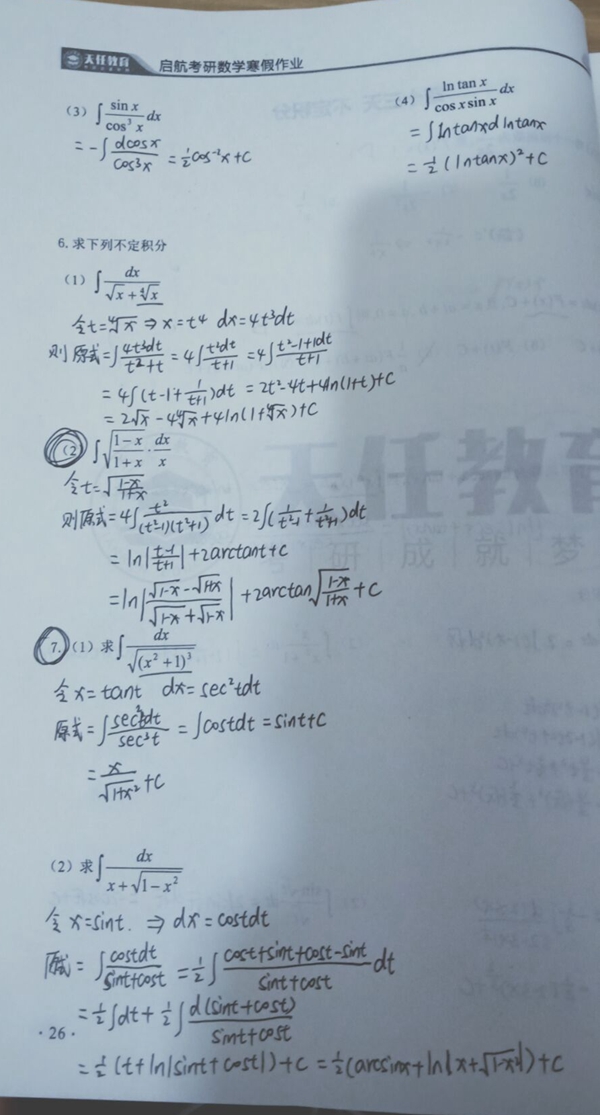 天任教育
启航考研数学寒假作业
(3) ∫ sin x / cos³ x dx
= -∫ dcosx / cos³x = ½cos⁻²x+C
(4) ∫ ln tan x / cos x sin x dx
= ∫ lntanx d lntanx
= ½ (lntanx)² + C
6. 求下列不定积分
(1) ∫ dx / (√x + ⁴√x)
令t=⁴√x ⇒ x=t⁴ dx=4t³dt
则原式=∫ 4t³dt / (t²+t) = 4∫ t²dt / (t+1) = 4∫ (t²-1+1)dt / (t+1)
= 4∫(t-1+ 1/(t+1))dt = 2t²-4t+4ln(1+t)+C
= 2√x - 4⁴√x + 4ln(1+⁴√x)+C
(2) ∫ √((1-x)/(1+x)) · dx/x
令t=√((1-x)/(1+x))
则原式=4∫ t² / ((t²-1)(t²+1)) dt = 2∫( 1/(t²-1) + 1/(t²+1) )dt
= ln|(t-1)/(t+1)| + 2arctant + C
= ln|(√(1-x) - √(1+x)) / (√(1-x) + √(1-x))| + 2arctan√((1-x)/(1+x)) + C
7. (1) 求 ∫ dx / √((x²+1)³)
令 x=tant dx=sec²tdt
原式=∫ sec²tdt / sec³t = ∫costdt = sint+C
= x / √(1+x²) + C
(2) 求 ∫ dx / (x+√(1-x²))
令 x=sint. ⇒ dx=costdt
原式 = ∫ costdt / (sint+cost) = ½∫ (cost+sint+cost-sint) / (sint+cost) dt
= ½∫dt + ½∫ d(sint+cost) / (sint+cost)
= ½(t+ln|sint+cost|)+C = ½(arcsinx+ln|x+√(1-x²)|)+C
· 26 ·
天任教育
研 | 成 | 就 | 梦